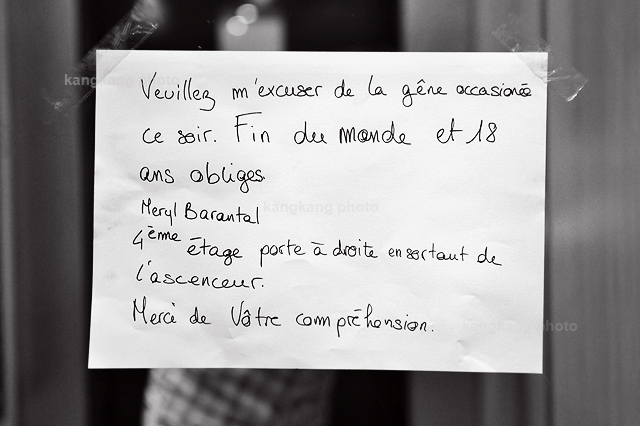 Veuillez m'excuser de la gêne occasionée
ce soir. Fin du monde et 18
ans obliges.
Meryl Barantal
4ème étage porte à droite en sortant de
l'ascenceur.
Merci de Vôtre compréhension.
kangkang photo
kangkang photo
kangkang photo